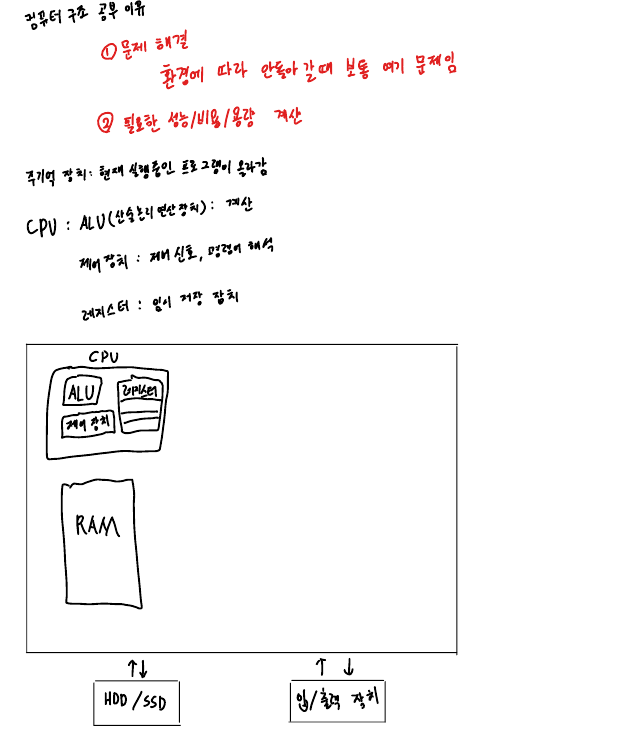 컴퓨터 구조 공부 이유
① 문제 해결
환경에 따라 안돌아 갈때 보통 여기 문제임
② 필요한 성능/비용/용량 계산
주기억 장치: 현재 실행중인 프로그램이 올라감
CPU : ALU(산술논리연산장치) : 계산
제어 장치 : 제어 신호, 명령어 해석
레지스터 : 임시 저장 장치
CPU
ALU
레지스터
제어 장치
RAM
HDD/SSD
입/출력 장치